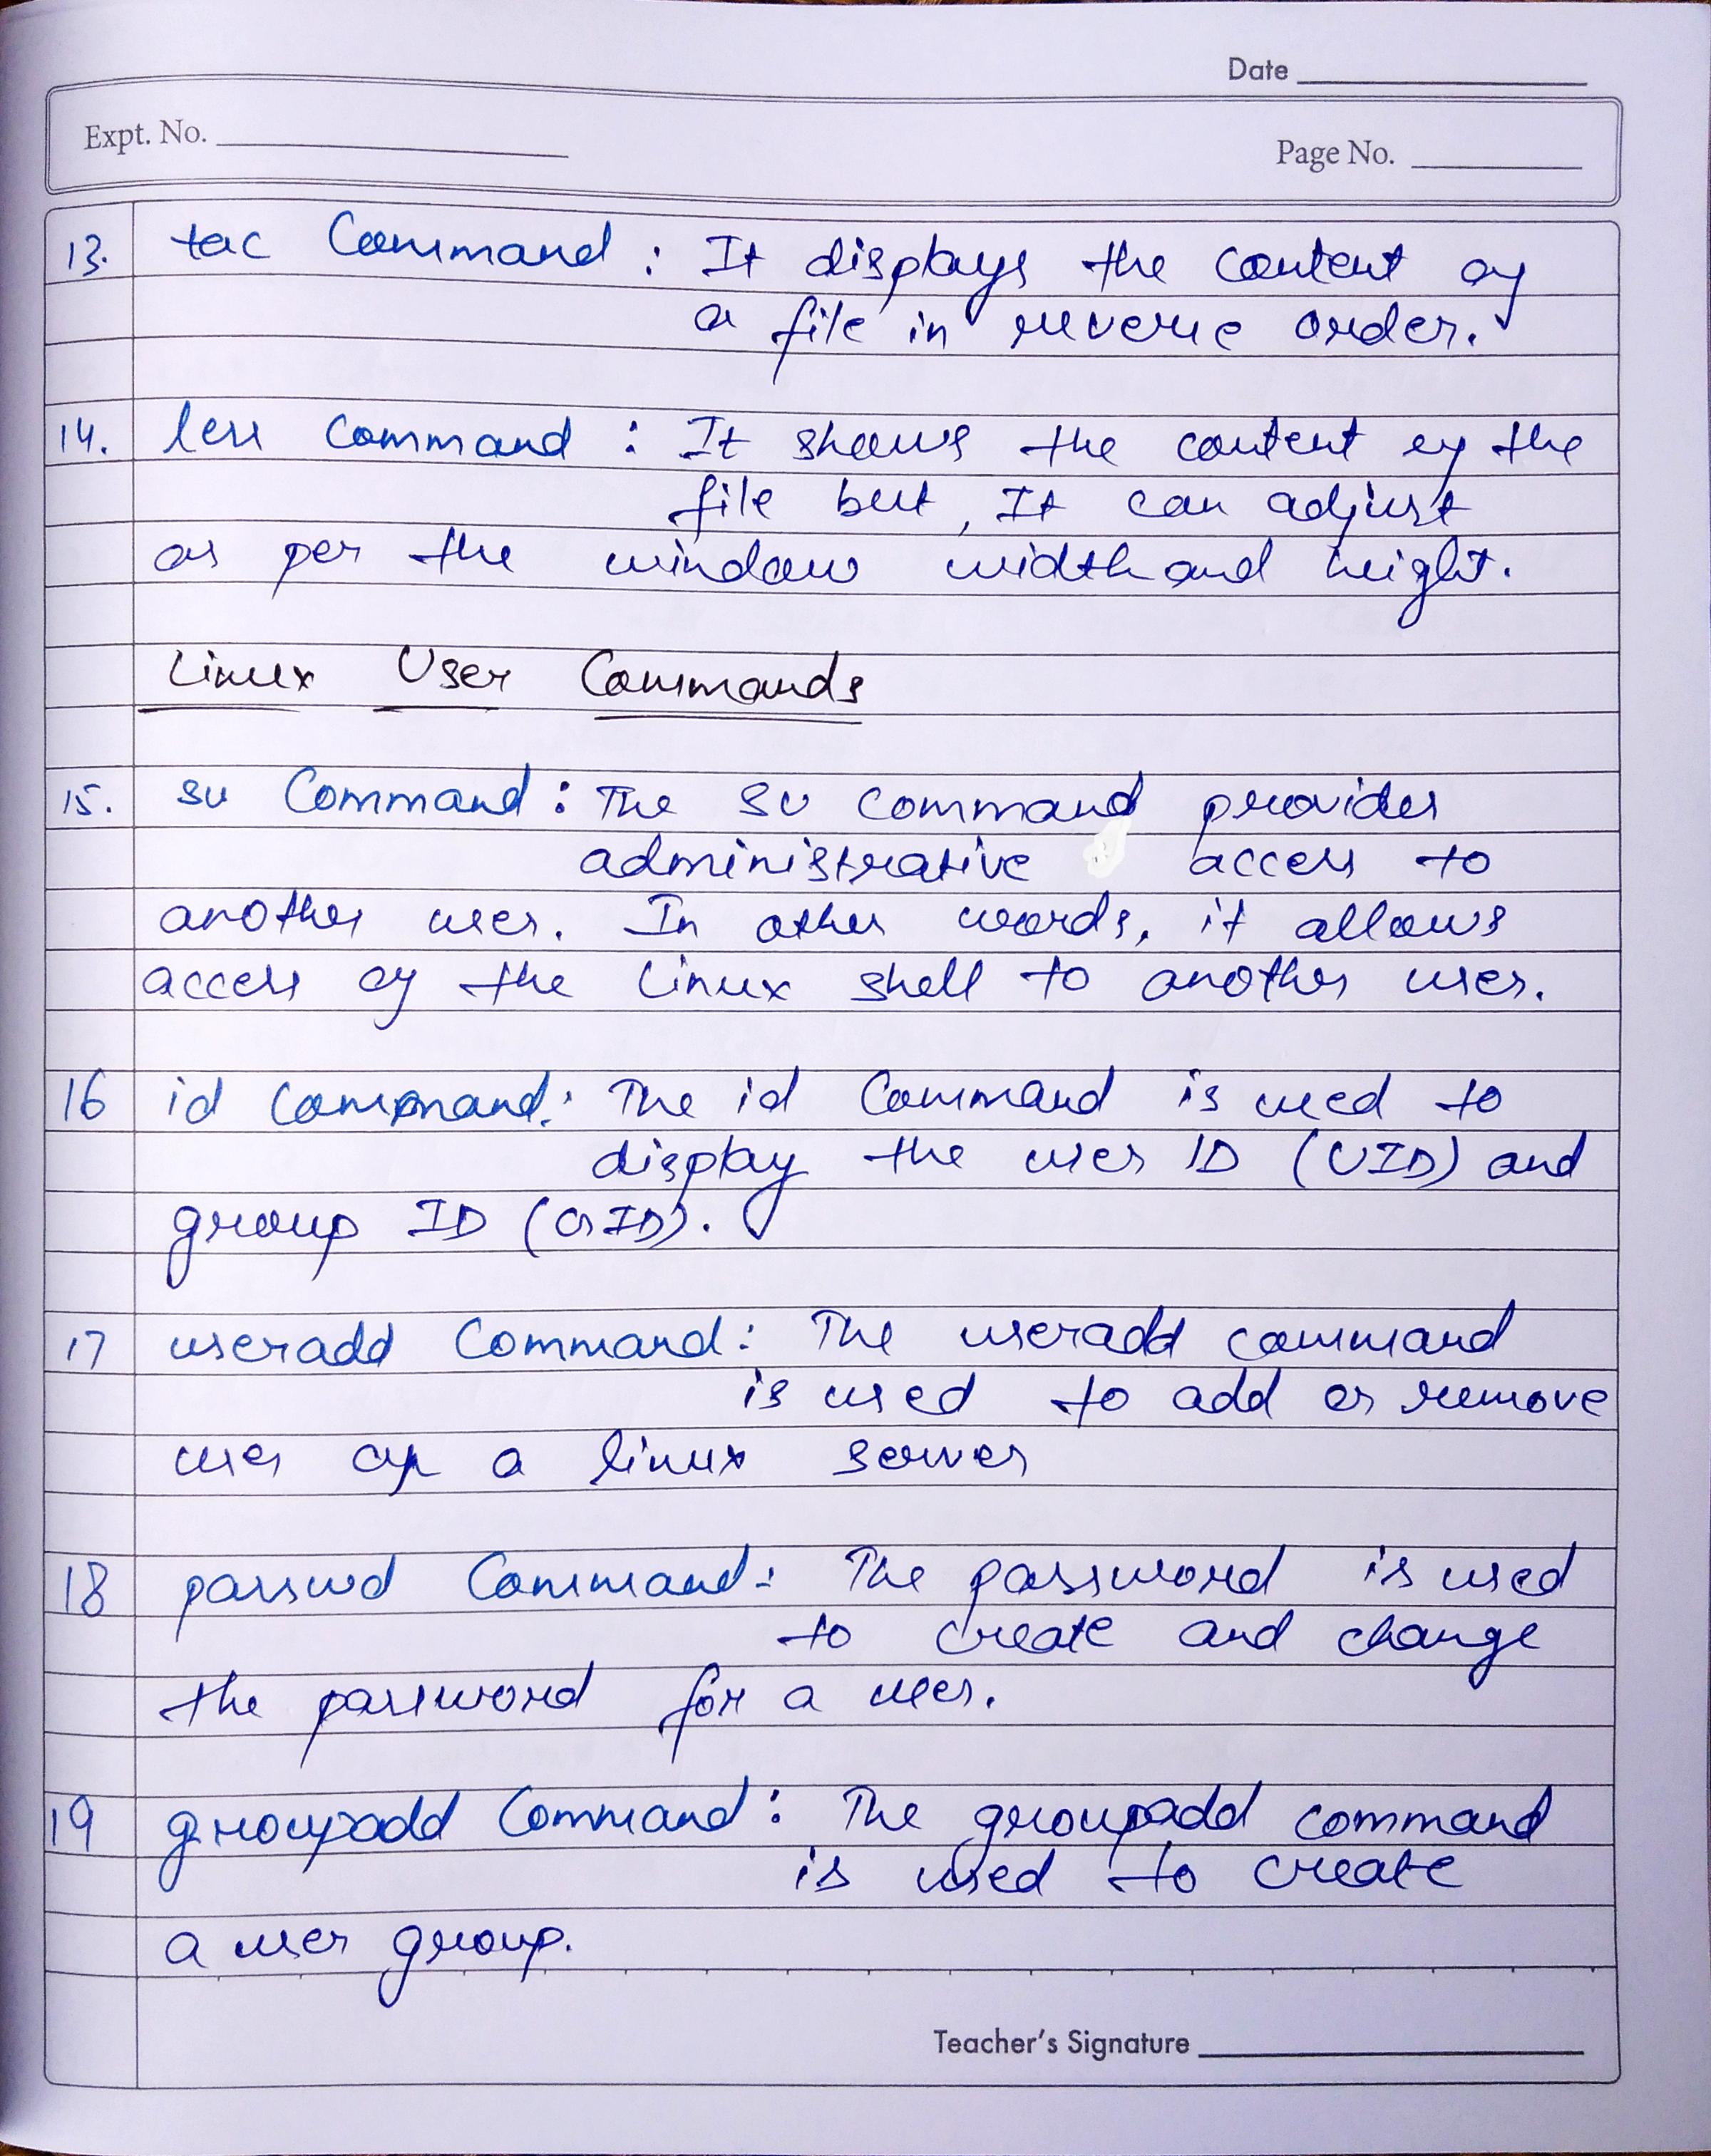 Date
Expt. No.
Page No.
13. tac Command : It displays the content of
a file in reverse order.
14. less Command : It shows the content of the
file but, It can adjust
as per the window width and height.
Linux User Commands
15. su Command : The su command provides
administrative access to
another user. In other words, it allows
access of the Linux shell to another user.
16 id Command: The id Command is used to
display the user ID (UID) and
group ID (GID).
17 useradd Command: The useradd command
is used to add or remove
user on a linux server
18 passwd Command: The password is used
to create and change
the password for a user.
19 groupadd Command: The groupadd command
is used to create
a user group.
Teacher's Signature